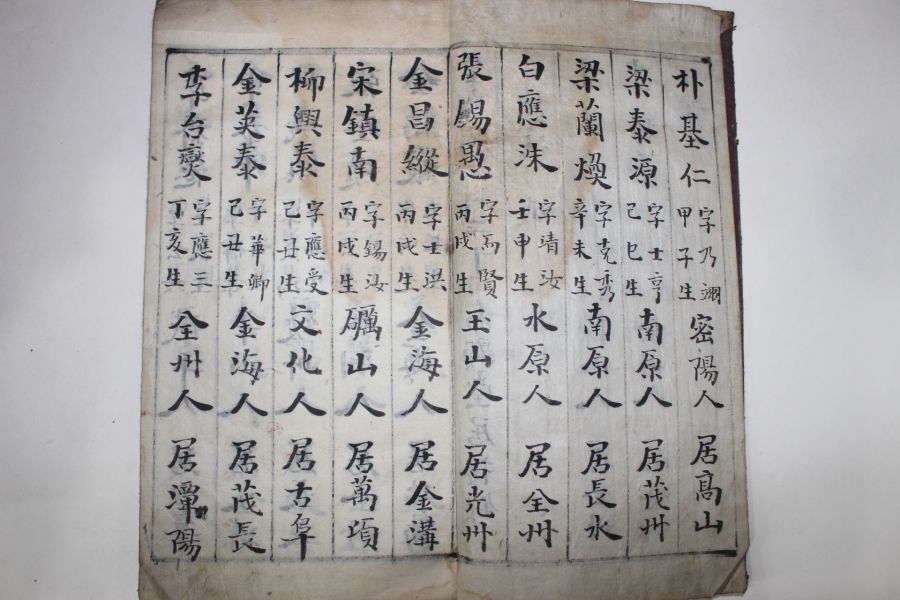 朴基仁 字乃翊 甲子生 密陽人 居高山
梁泰源 字士亨 己巳生 南原人 居茂州
梁蘭煥 字克秀 辛未生 南原人 居長水
白應洙 字靖汝 壬申生 水原人 居全州
張錫愚 字禹賢 丙戌生 玉山人 居光州
金昌縱 字士洪 丙戌生 金海人 居金溝
宋鎮南 字錫汝 丙戌生 礪山人 居萬頃
柳興泰 字應受 己丑生 文化人 居古阜
金英泰 字華卿 己丑生 金海人 居茂長
李台燮 字應三 丁亥生 全州人 居潭陽